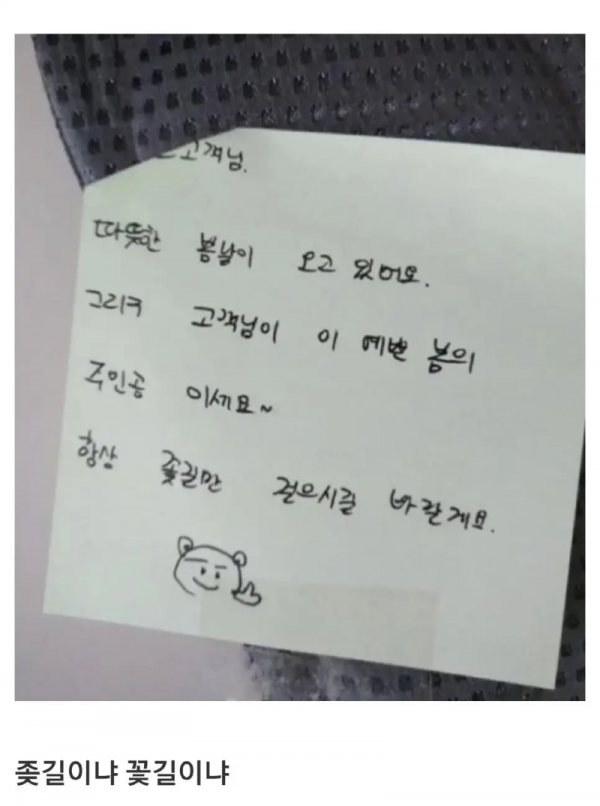 고객님.
따뜻한 봄날이 오고 있어요.
그리구 고객님이 이 예쁜 봄의
주인공 이세요~
항상 좆길만 걸으시길 바랄게요.
좆길이냐 꽃길이냐